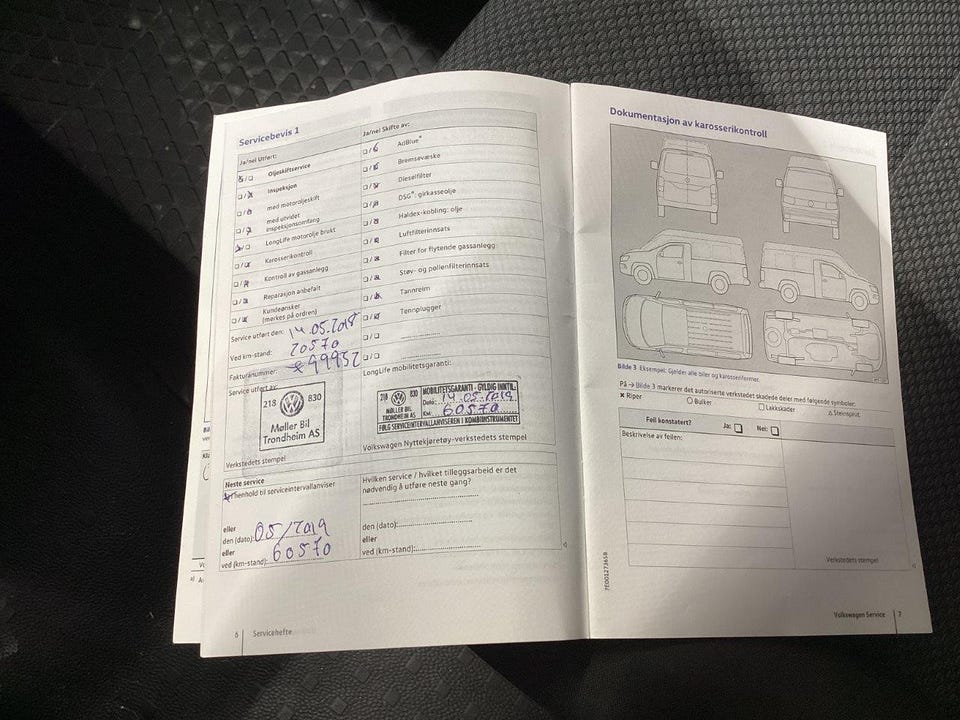 Servicebevis 1
Ja/nei Utført:
Oljeskiftservice
Inspeksjon
med motoroljeskift
med utvidet
inspeksjonsomfang
LongLife motorolje brukt
Karosserikontroll
Kontroll av gassanlegg
Reparasjon anbefalt
Kundeønsker
(merkes på ordren)
Service utført den: 14.05.2018
Ved km-stand: 20570
Fakturanummer:
Service utført av:
218 830
Møller Bil
Trondheim AS
Verkstedets stempel
Ja/nei Skifte av:
AdBlue®
Bremsevæske
Dieselfilter
DSG®: girkasseolje
Haldex-kobling: olje
Luftfilterinnsats
Filter for flytende gassanlegg
Støv- og pollenfilterinnsats
Tannreim
Tennplugger
LongLife mobilitetsgaranti:
218 830 MOBILITETSGARANTI - GYLDIG INNTIL:
Dato: 14.05.2019
MØLLER BIL
TRONDHEIM AS
KM: 60570
FØLG SERVICEINTERVALLANVISEREN I KOMBIINSTRUMENTET
Volkswagen Nyttekjøretøy-verkstedets stempel
Neste service
I henhold til serviceintervallanviser
eller
den (dato): 05/2019
eller
ved (km-stand): 60570
Hvilken service / hvilket tilleggsarbeid er det
nødvendig å utføre neste gang?
den (dato):
eller
ved (km-stand):
6 Servicehefte
Dokumentasjon av karosserikontroll
Bilde 3 Eksempel: Gjelder alle biler og karosseriformer.
På → Bilde 3 markerer det autoriserte verkstedet skadede deler med følgende symboler:
× Riper ○ Bulker □ Lakkskader △ Steinsprut.
Feil konstatert? Ja: Nei:
Beskrivelse av feilen:
Verkstedets stempel
7E0012736SB
Volkswagen Service 7